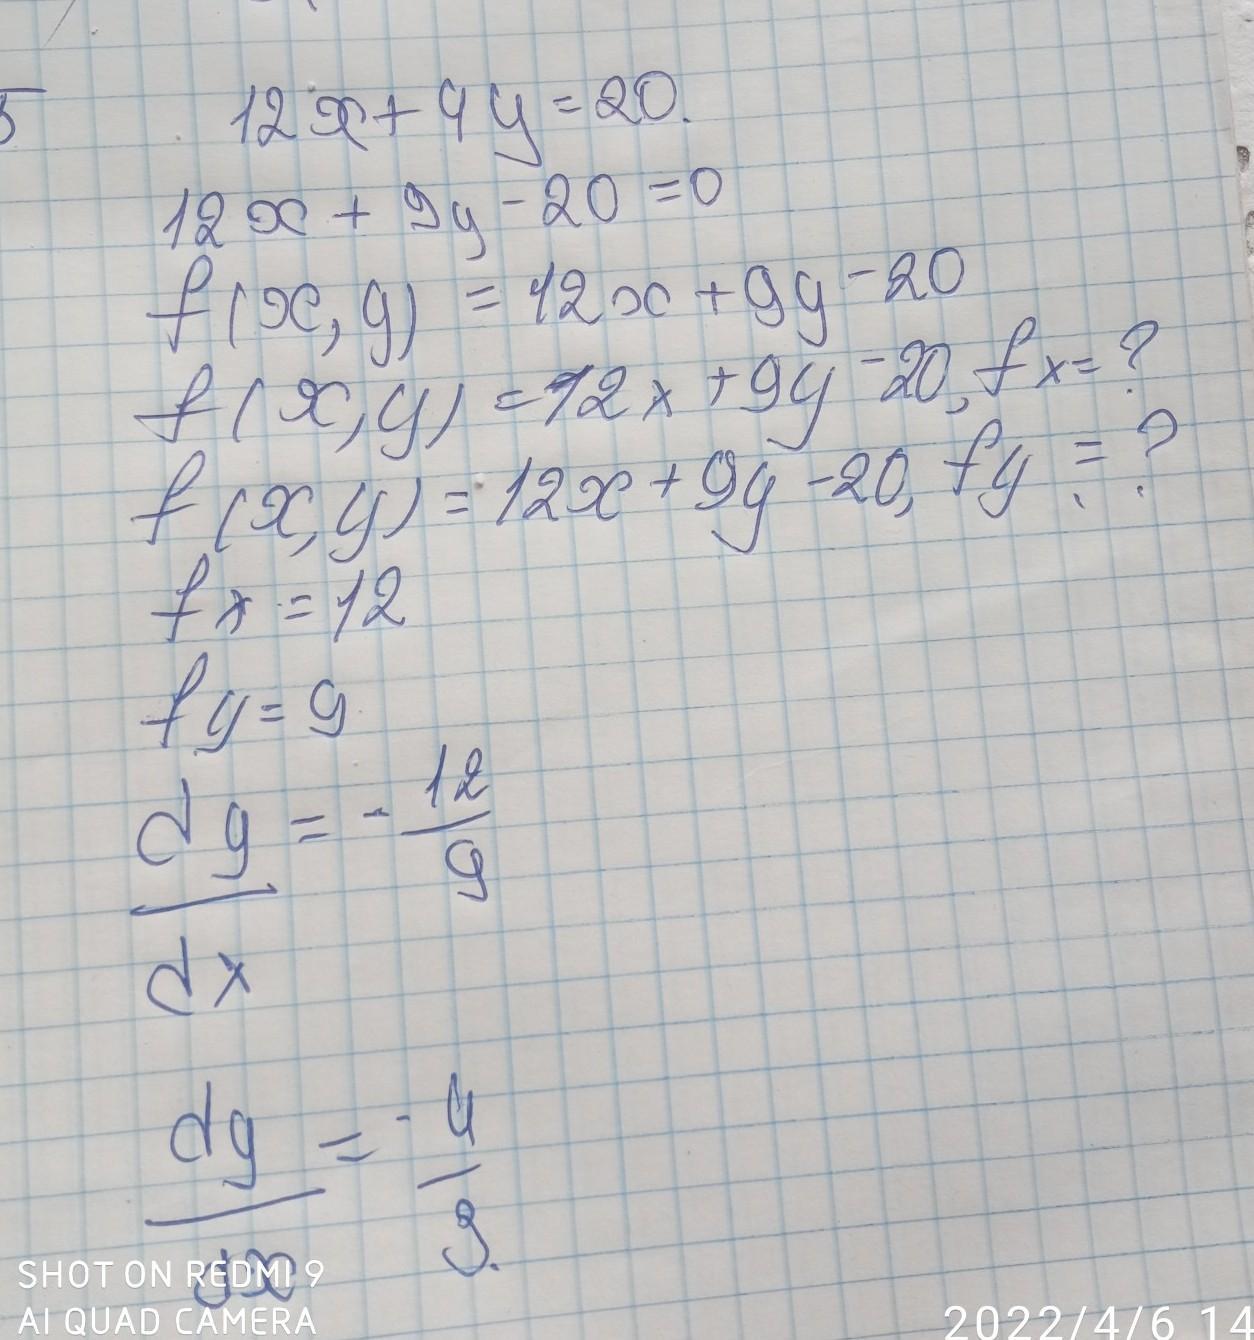 5
12x+9y=20.
12x+9y-20=0
f(x,y)=12x+9y-20
f(x,y)=12x+9y-20, fx=?
f(x,y)=12x+9y-20, fy=?
fx=12
fy=9
dy/dx=-12/9
dy/dx=-4/3.
SHOT ON REDMI 9
AI QUAD CAMERA
2022/4/6 14